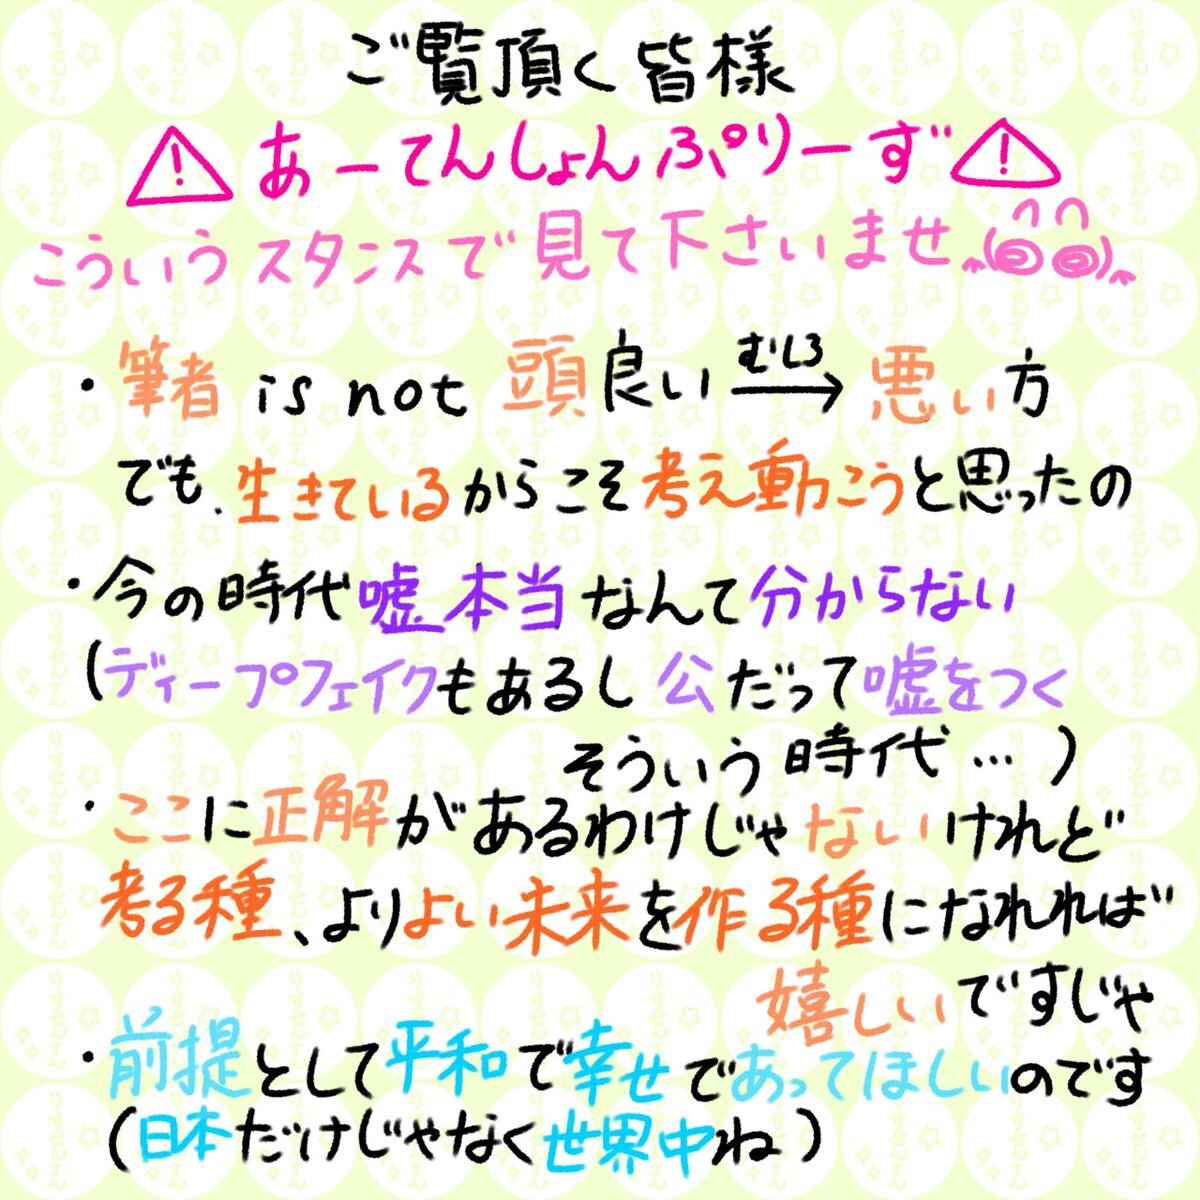 ご覧頂く皆様
⚠あーてんしょんぷりーず⚠
こういうスタンスで見て下さいませ
・筆者 is not 頭良い むしろ→ 悪い方
でも、生きているからこそ考え動こうと思ったの
・今の時代嘘本当なんて分からない
(ディープフェイクもあるし公だって嘘をつく
そういう時代…)
・ここに正解があるわけじゃないけれど
考る種、よりよい未来を作る種になれれば
嬉しいですじゃ
・前提として平和で幸せであってほしいのです
(日本だけじゃなく世界中ね)